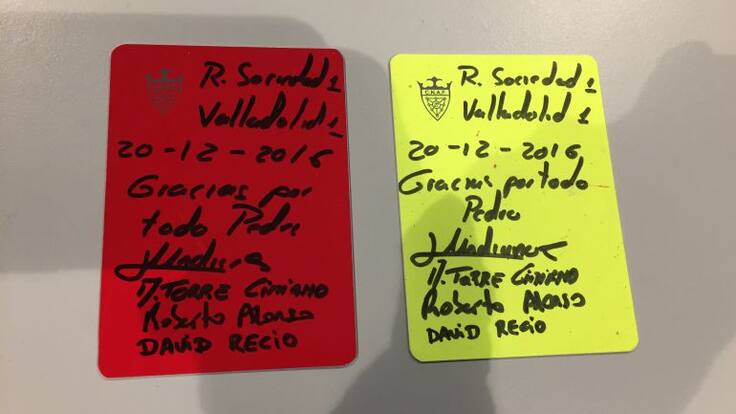 R. Sociedad 1
Valladolid 1
20-12-2016
Gracias por
todo Pedro
M. TORRE CIMIANO
Roberto Alonso
DAVID RECIO
C.N.A.F.
R. Sociedad 1
Valladolid 1
20-12-2016
Gracias por todo
Pedro
M. TORRE CIMIANO
Roberto Alonso
DAVID RECIO